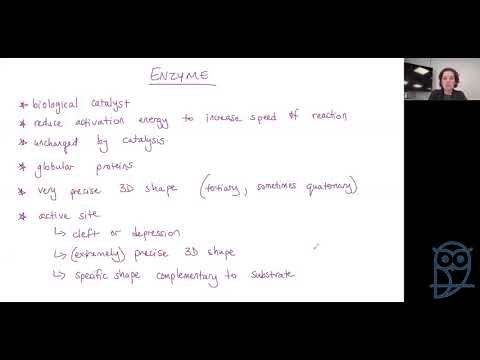 ENZYME
* biological catalyst
* reduce activation energy to increase speed of reaction
* unchanged by catalysis
* globular proteins
* very precise 3D shape (tertiary, sometimes quaternary)
* active site
↳ cleft or depression
↳ (extremely) precise 3D shape
↳ specific shape complementary to substrate